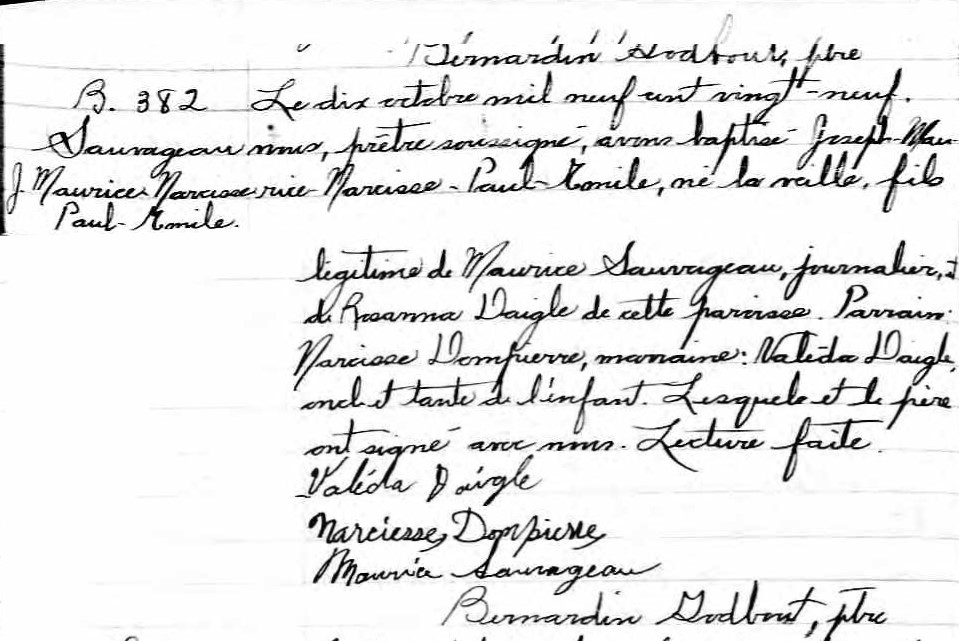 Bernardin Godbout, ptre
B. 382 Le dix octobre mil neuf cent vingt-neuf.
Sauvageau nous, prêtre soussigné, avons baptisé Joseph-Mau-
J. Maurice-Narcisse rice-Narcisse-Paul-Emile, né la veille, fils
Paul-Emile.
légitime de Maurice Sauvageau, journalier, et
de Rosanna Daigle de cette paroisse. Parrain:
Narcisse Dompierre, marraine: Valéda Daigle,
oncle et tante de l'enfant. Lesquels et le père
ont signé avec nous. Lecture faite.
Valéda Daigle
Narciesse Dompierre
Maurice Sauvageau
Bernardin Godbout, ptre